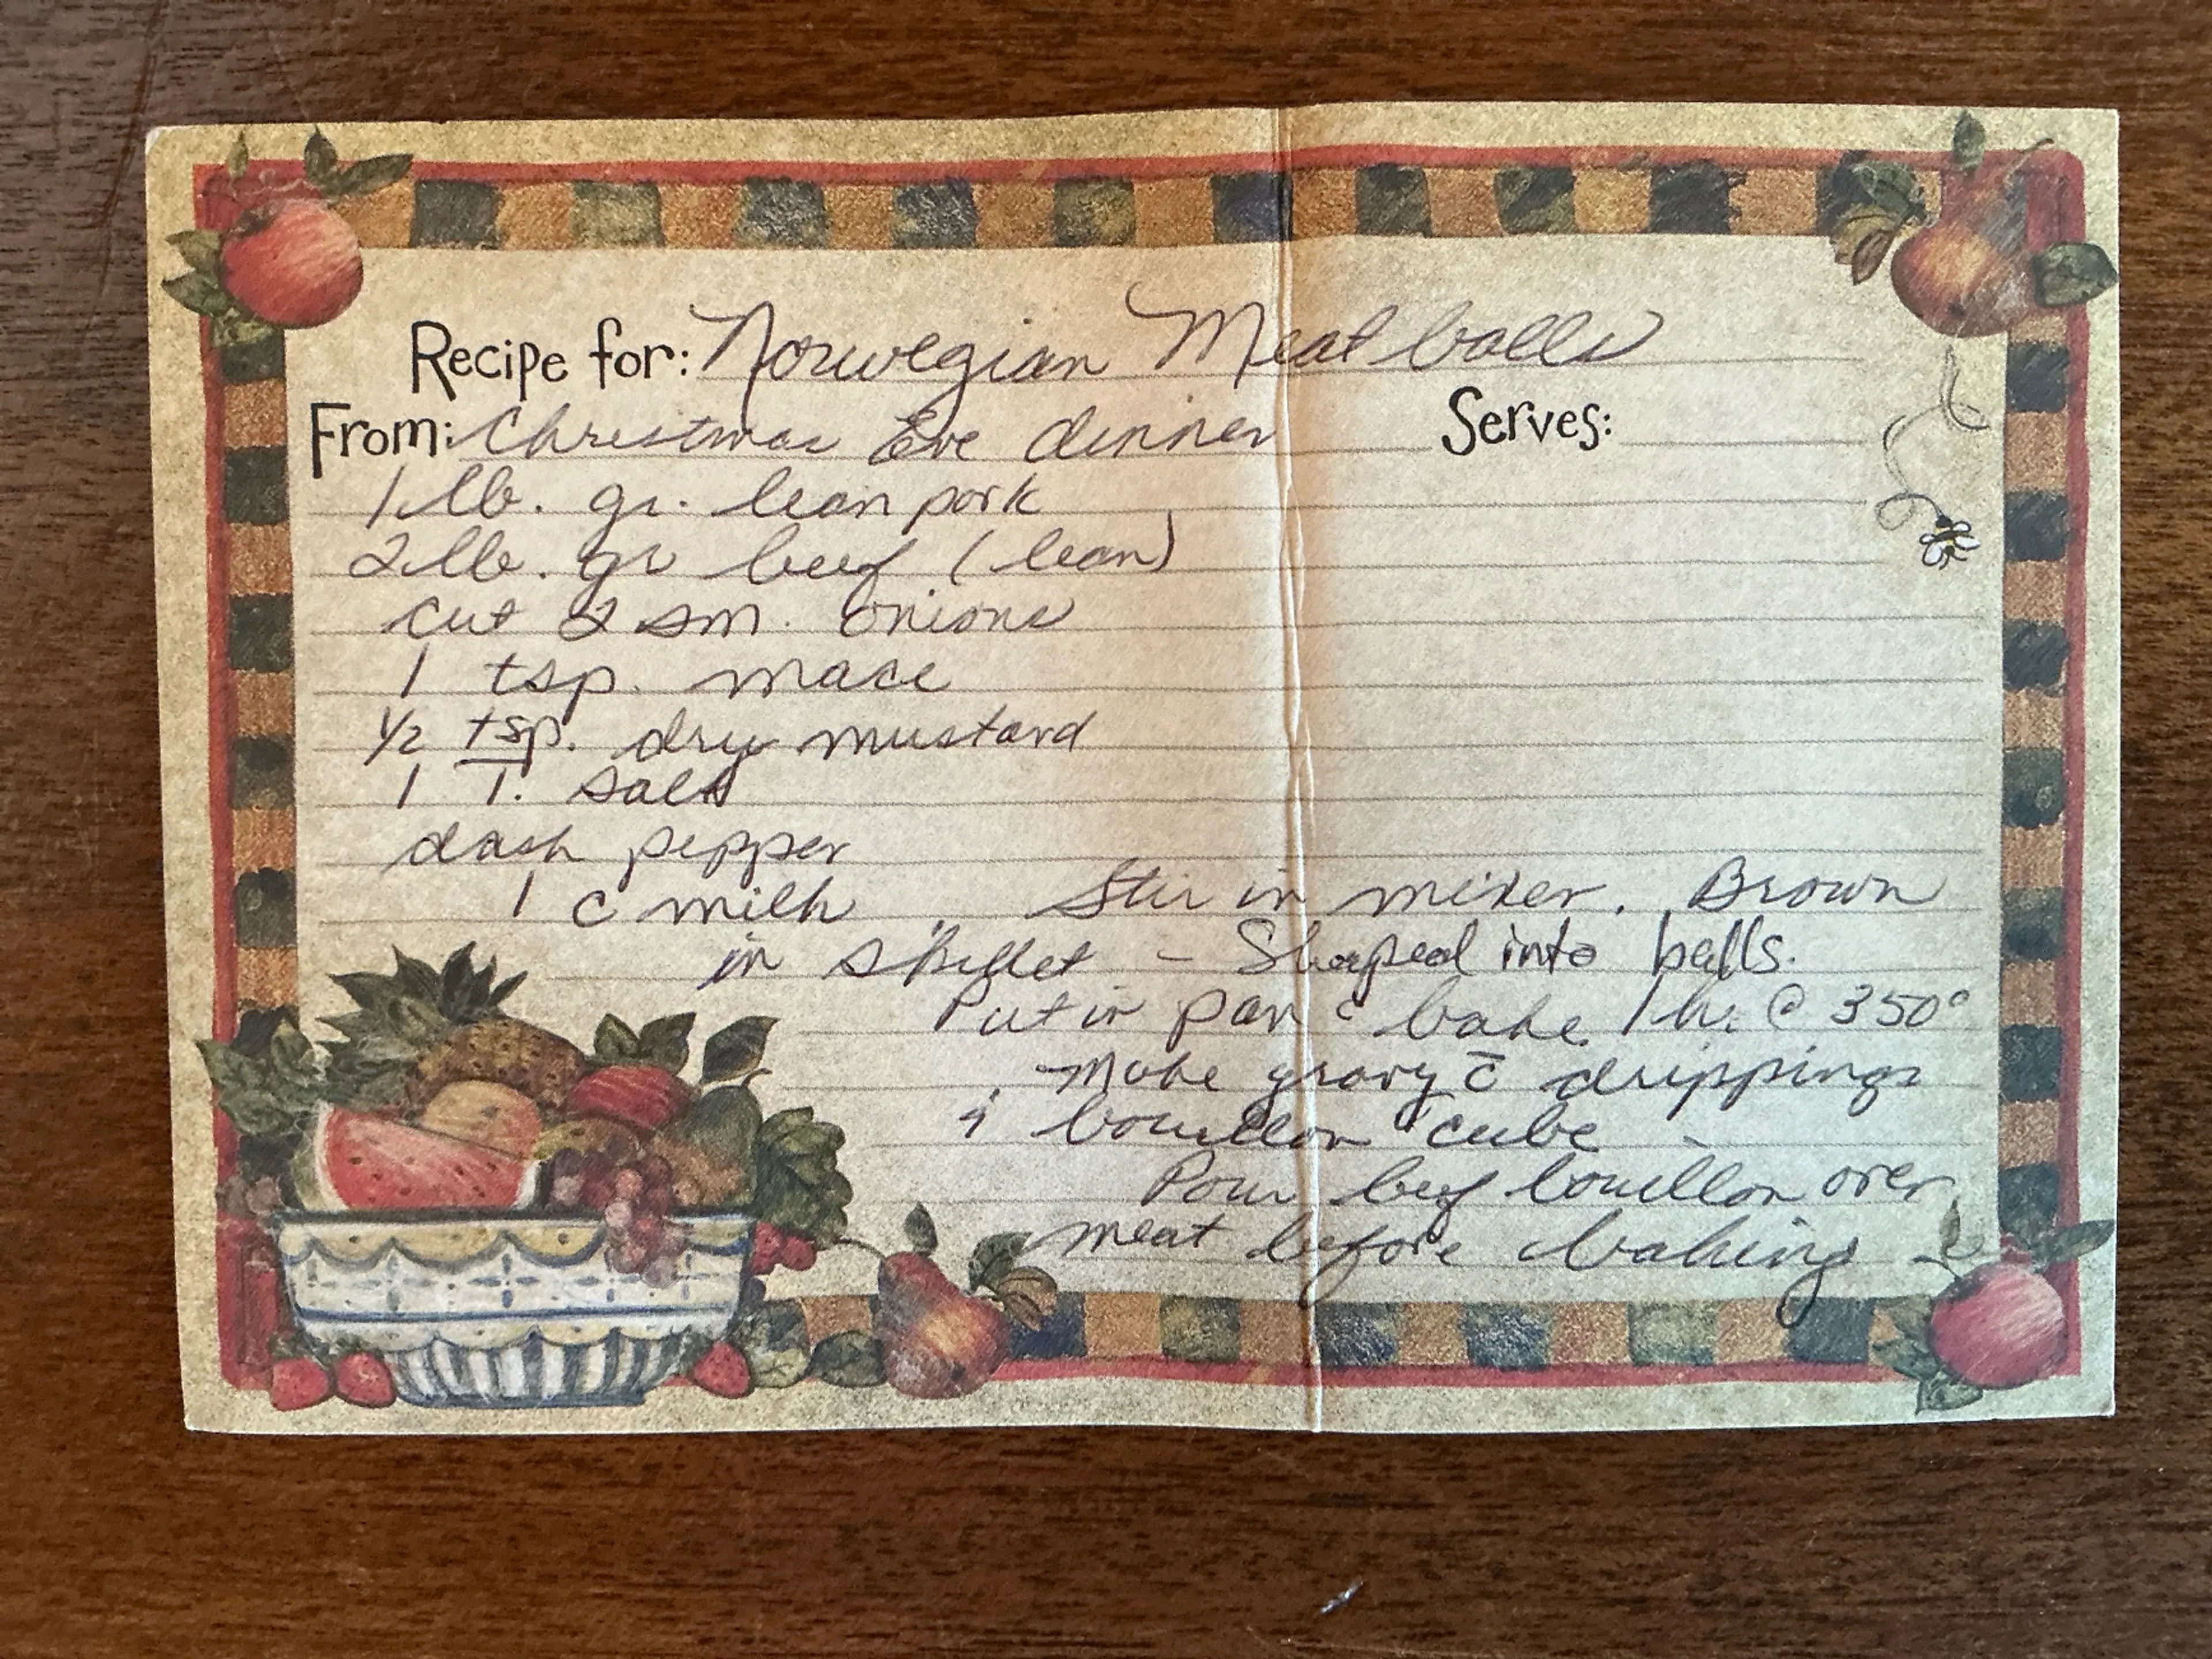 Recipe for: Norwegian Meat balls
From: Christmas Eve dinner Serves:
1 lb. gr. lean pork
2 lb. gr beef (lean)
cut 2 sm. onions
1 tsp. mace
1/2 tsp. dry mustard
1 T. salt
dash pepper
1 c milk Stir in mixer. Brown
in skillet - Shaped into balls.
Put in pan & bake 1 hr. @ 350°
Make gravy c̄ drippings
& bouillon cube -
Pour beef bouillon over
meat before baking -